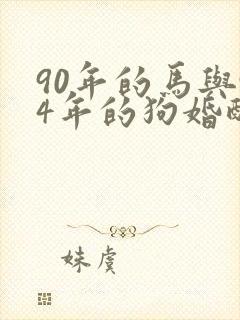 90年的馬與
4年的狗婚
妹虞